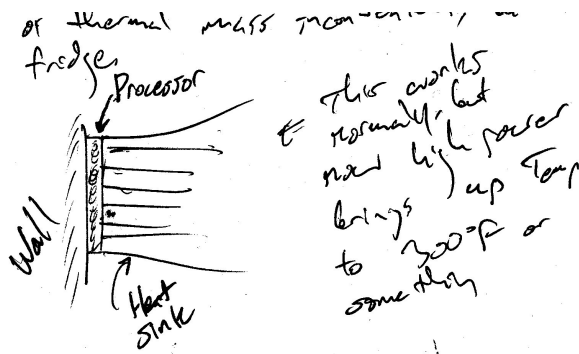 of thermal mass
fridge,
Processor
Wall
Heat
sink
← This works
normally, but
now high power
brings up Temp
to 300°F or
something